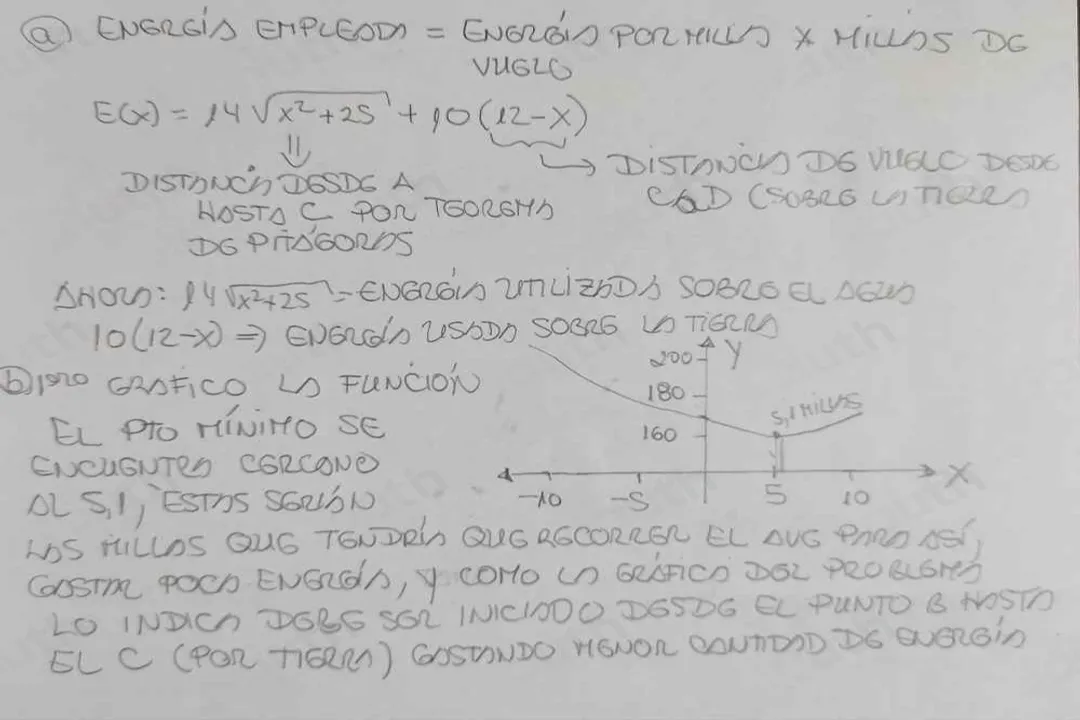 a) ENERGÍA EMPLEADA = ENERGÍA POR MILLA X MILLAS DE
VUELO
E(x) = 14 √x²+25 + 10 (12-x)
⇓
→ DISTANCIA DE VUELO DESDE
C a D (SOBRE LA TIERRA
DISTANCIA DESDE A
HASTA C POR TEOREMA
DE PITÁGORAS
AHORA: 14 √x²+25 = ENERGÍA UTILIZADA SOBRE EL AGUA
10(12-x) ⇒ ENERGÍA USADA SOBRE LA TIERRA
b) 1ero GRAFICO LA FUNCIÓN
EL PTO MÍNIMO SE
ENCUENTRA CERCANO
AL 5,1, ESTAS SERIÁN
200 Y
180
160
5,1 MILLAS
-10 -5 5 10 X
LAS MILLAS QUE TENDRÍA QUE RECORRER EL AVE PARA ASÍ,
GASTAR POCA ENERGÍA, Y COMO LA GRÁFICA DEL PROBLEMA
LO INDICA DEBE SER INICIADO DESDE EL PUNTO B HASTA
EL C (POR TIERRA) GASTANDO MENOR CANTIDAD DE ENERGÍA